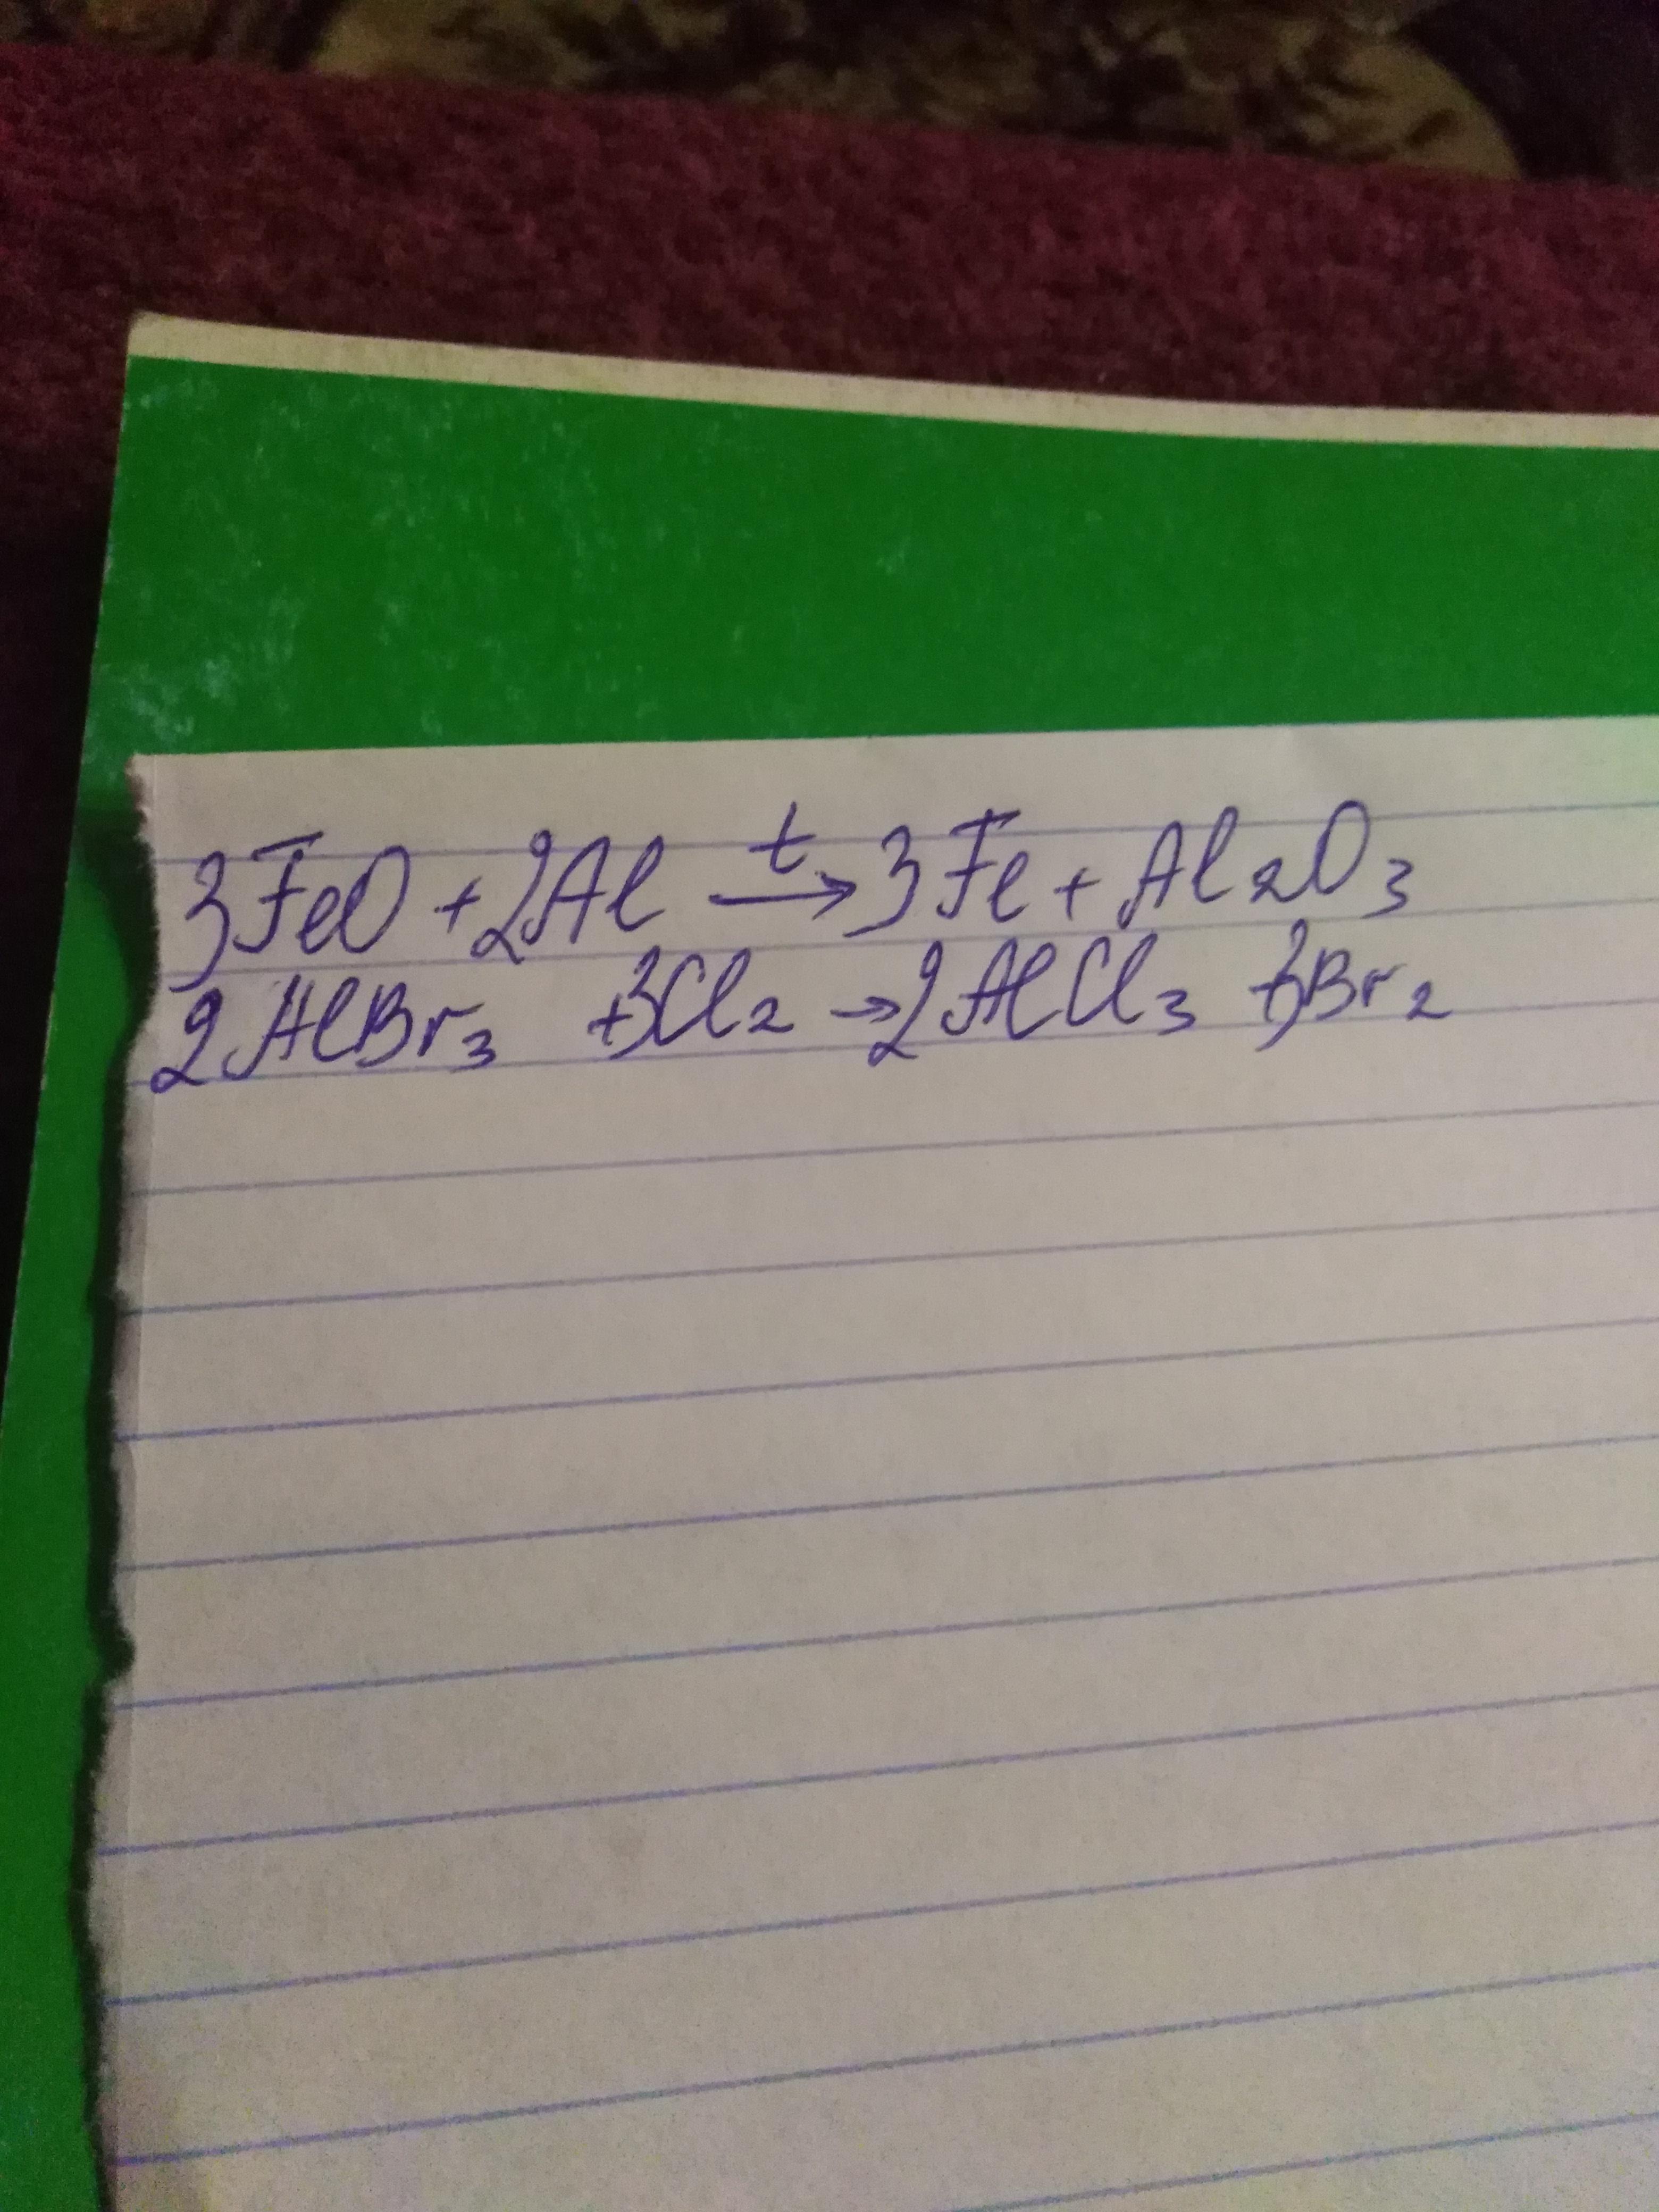 3FeO + 2Al t→ 3Fe + Al2O3
2AlBr3 + 3Cl2 → 2AlCl3 + 3Br2